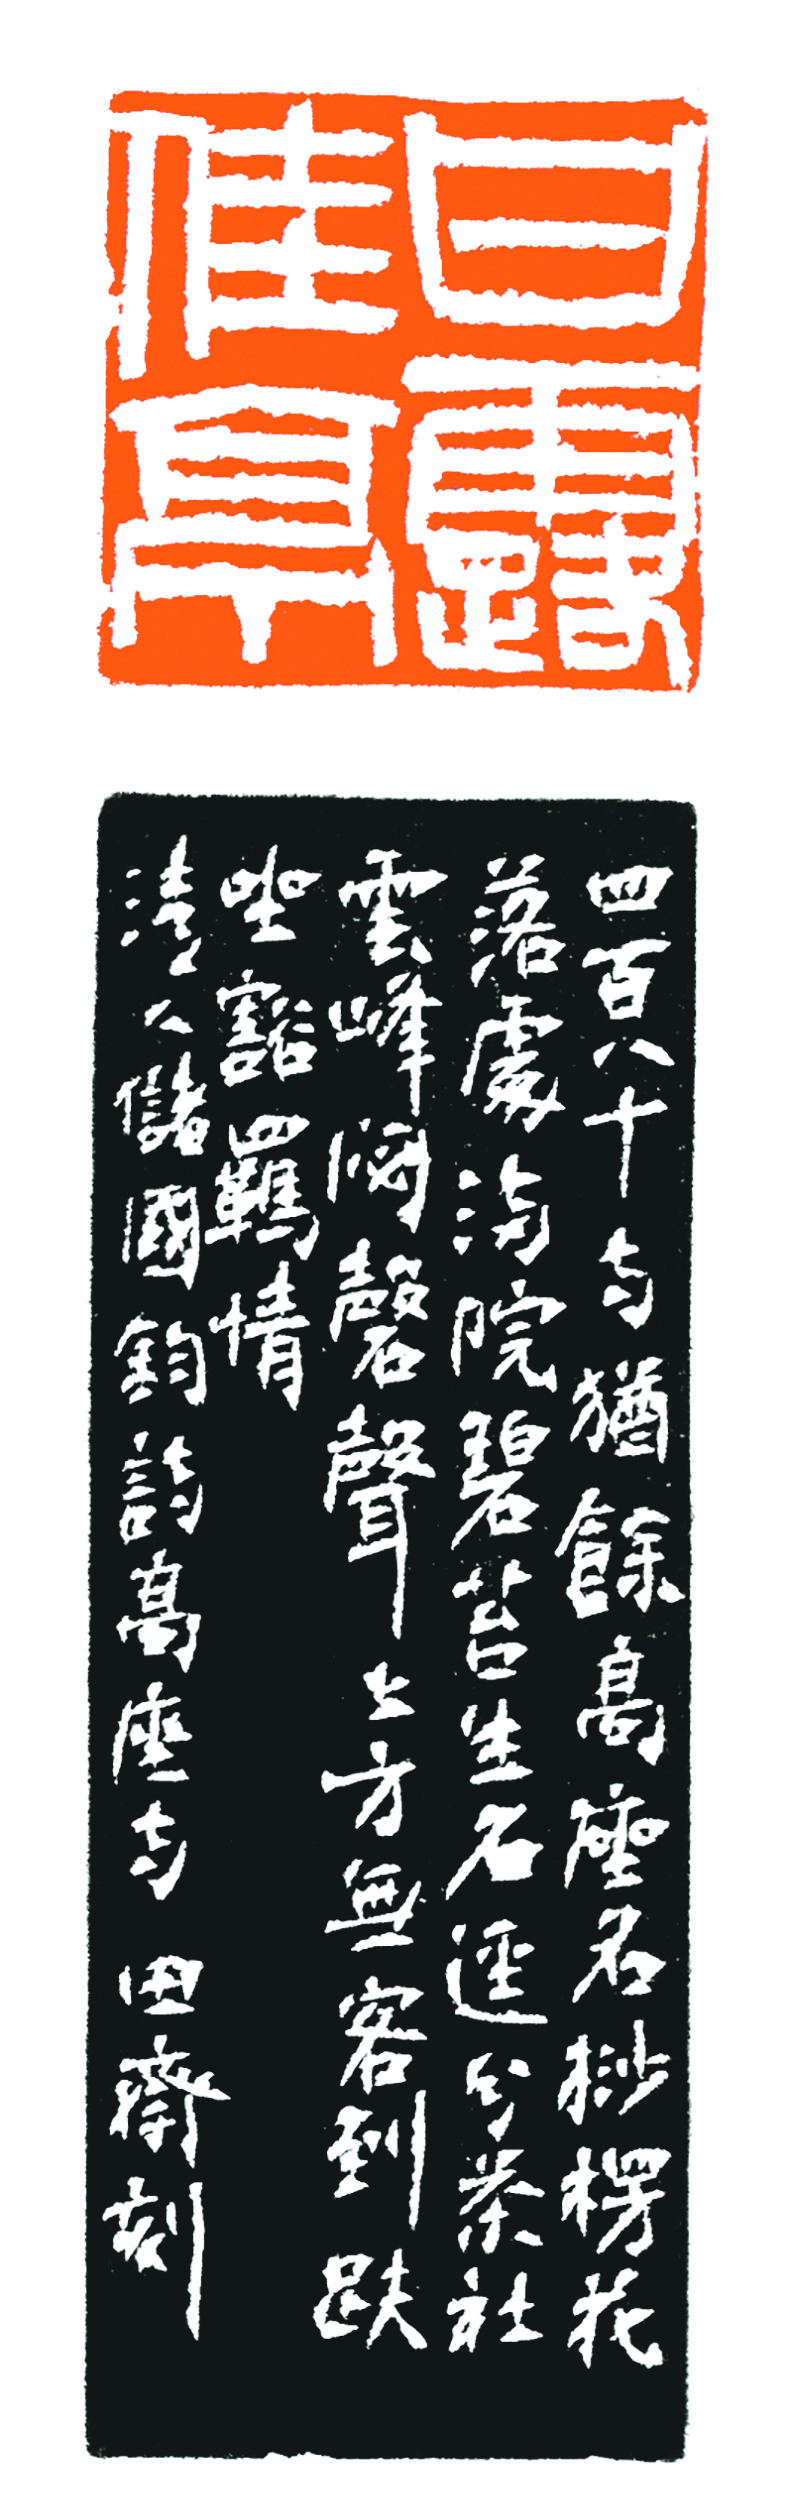 四百八十寺猶餘高座名桫楞花
落處院碧苔生石逕分茶社
雲峰聞磬聲上方無客到趺
坐豁羈情
清人儲國鈞詩高座寺齋刻